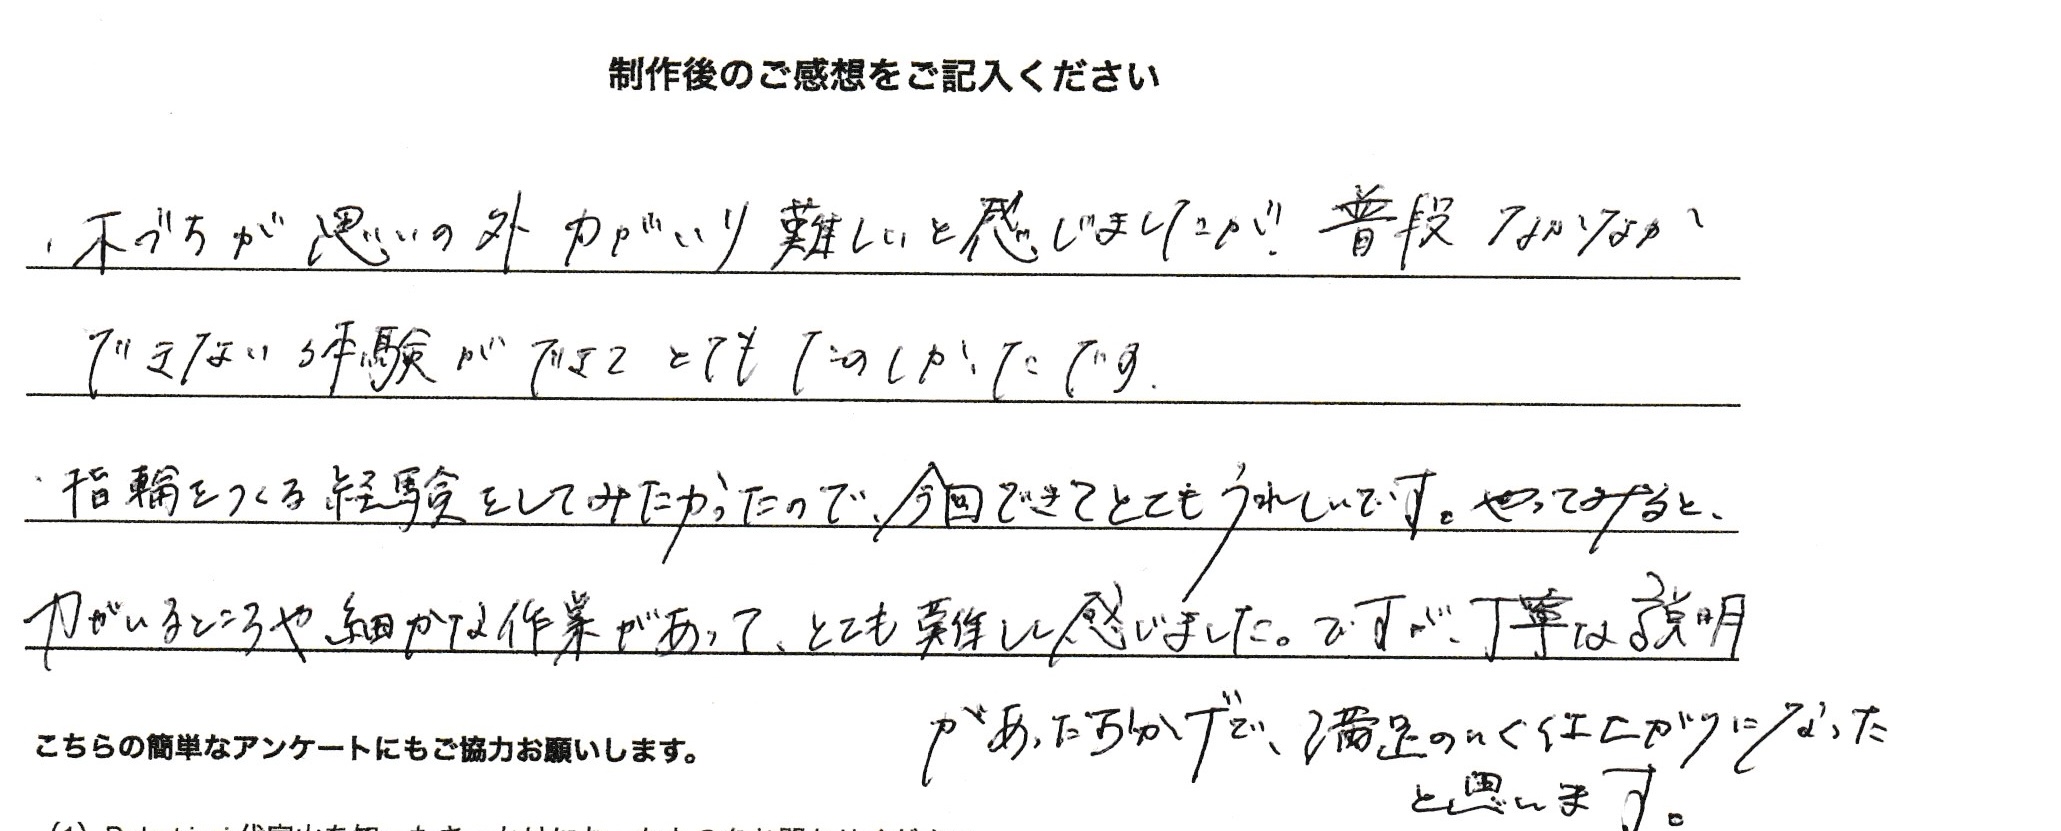 制作後のご感想をご記入ください
・木づちが思いの外力がいり難しいと感じましたが、普段なかなか
できない体験ができてとてもたのしかったです.
・指輪をつくる経験をしてみたかったので、今回できてとてもうれしいです。やってみると、
力がいるところや細かな作業があって、とても難しく感じました。ですが、丁寧な説明
があったおかげで、満足のいく仕上がりになった
と思います。
こちらの簡単なアンケートにもご協力お願いします。